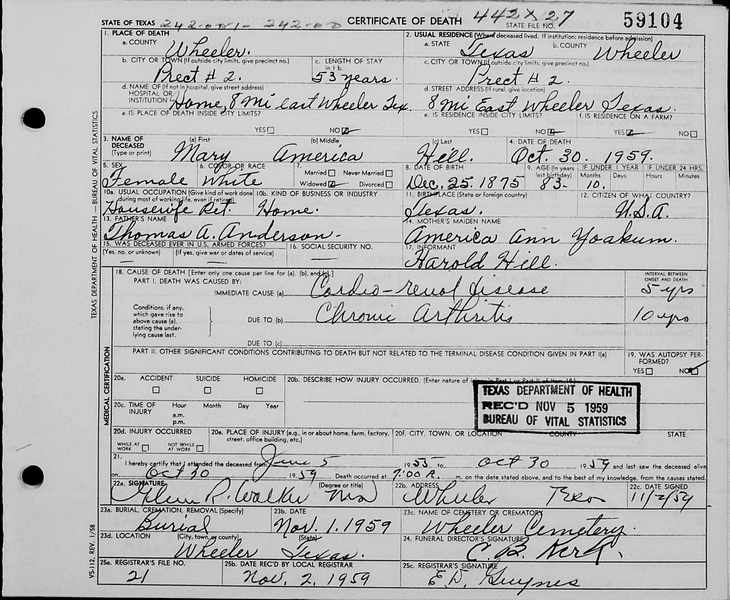 STATE OF TEXAS
CERTIFICATE OF DEATH 442X27 59104
STATE FILE NO.
1. PLACE OF DEATH
a. COUNTY Wheeler.
2. USUAL RESIDENCE (Where deceased lived. If institution: residence before admission)
a. STATE Texas b. COUNTY Wheeler
b. CITY OR TOWN (If outside city limits, give precinct no.) Prect # 2.
c. LENGTH OF STAY in 1 b. 53 years.
c. CITY OR TOWN (If outside city limits, give precinct no.) Prect # 2.
d. NAME OF (If not in hospital, give street address) HOSPITAL OR INSTITUTION Home, 8 Mi East Wheeler Tex.
d. STREET ADDRESS (If rural, give location) 8 Mi East Wheeler Texas.
e. IS PLACE OF DEATH INSIDE CITY LIMITS? YES NO
e. IS RESIDENCE INSIDE CITY LIMITS? YES NO
f. IS RESIDENCE ON A FARM? YES NO
3. NAME OF DECEASED (Type or print)
(a) First Mary (b) Middle America (c) Last Hill.
4. DATE OF DEATH Oct. 30. 1959.
5. SEX Female
6. COLOR OR RACE White
7. Married Never Married
Widowed Divorced
8. DATE OF BIRTH Dec. 25. 1875
9. AGE (In years last birthday) 83-
IF UNDER 1 YEAR Months 10. Days
IF UNDER 24 HRS. Hours Minutes
10a. USUAL OCCUPATION (Give kind of work done during most of working life, even if retired) Housewife Ret.
10b. KIND OF BUSINESS OR INDUSTRY Home.
11. BIRTHPLACE (State or foreign country) Texas.
12. CITIZEN OF WHAT COUNTRY? U.S.A.
13. FATHER'S NAME Thomas A. Anderson-
14. MOTHER'S MAIDEN NAME America Ann Yoakum.
15. WAS DECEASED EVER IN U.S. ARMED FORCES?
(Yes, no, or unknown) (If yes, give war or dates of service)
16. SOCIAL SECURITY NO.
17. INFORMANT Harold Hill.
18. CAUSE OF DEATH [Enter only one cause per line for (a), (b), and (c).]
PART I. DEATH WAS CAUSED BY:
INTERVAL BETWEEN ONSET AND DEATH
IMMEDIATE CAUSE (a) Cardio-renal disease 5 yrs
Conditions, if any, which gave rise to above cause (a), stating the underlying cause last.
DUE TO (b) Chronic Arthritis 10 yrs
DUE TO (c)
PART II. OTHER SIGNIFICANT CONDITIONS CONTRIBUTING TO DEATH BUT NOT RELATED TO THE TERMINAL DISEASE CONDITION GIVEN IN PART I(a)
19. WAS AUTOPSY PERFORMED?
YES NO
20a. ACCIDENT SUICIDE HOMICIDE
20b. DESCRIBE HOW INJURY OCCURRED. (Enter nature of injury in Part I or Part II of item 18.)
TEXAS DEPARTMENT OF HEALTH
REC'D NOV 5 1959
BUREAU OF VITAL STATISTICS
20c. TIME OF INJURY Hour Month Day Year
a.m.
p.m.
20d. INJURY OCCURRED
WHILE AT WORK NOT WHILE AT WORK
20e. PLACE OF INJURY (e.g., in or about home, farm, factory, street, office building, etc.)
20f. CITY, TOWN, OR LOCATION COUNTY STATE
21. I hereby certify that I attended the deceased from June 5 1955 to Oct 30 1959 and last saw the deceased alive
on Oct 30 1959 Death occurred at 7:00 A. m. on the date stated above, and to the best of my knowledge, from the causes stated.
22a. SIGNATURE Glenn R. Walker (Degree or title) MD
22b. ADDRESS Wheeler Texas
22c. DATE SIGNED 11/2/59
23a. BURIAL, CREMATION, REMOVAL (Specify) Burial
23b. DATE Nov. 1. 1959
23c. NAME OF CEMETERY OR CREMATORY Wheeler Cemetery.
23d. LOCATION (City, town, or county) (State) Wheeler Texas.
24. FUNERAL DIRECTOR'S SIGNATURE
25a. REGISTRAR'S FILE NO. 21
25b. DATE REC'D BY LOCAL REGISTRAR Nov. 2. 1959
25c. REGISTRAR'S SIGNATURE
TEXAS DEPARTMENT OF HEALTH—BUREAU OF VITAL STATISTICS
MEDICAL CERTIFICATION
VS-112, REV. 1/58